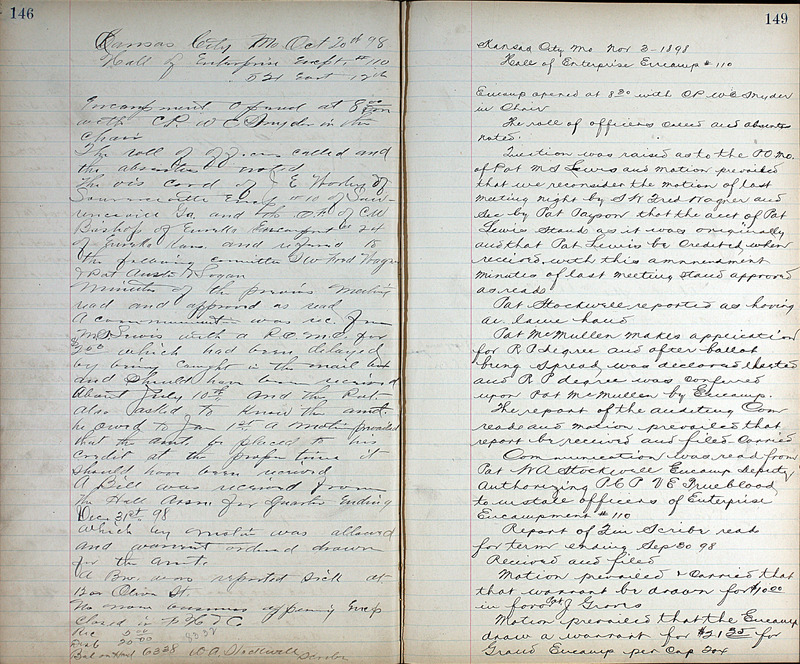 146
Kansas City Mo Oct 20th 98
Hall of Enterprise Encpt. # 110
521 East 12th
Encampment opened at 8 00
with C.P. W C Snyder in the
Chair
The roll of officers called and
the absentees noted
The vis card of J E
Encmp #10 of
Ga. and the of C W
Bishop of Eureka Encampment # 24
of Eureka Kans. and refered to
the following committee S W Fred Wagner
& Pat Austin Logan
Minutes of the previous meeting
read and approved as read
A communication was rec. from
M S Lewis with a P.O. M.O. for
$2.00 which had been delayed
by being caught in the mail
and should have been received
about July 10th and this Pat.
also asked to know the amt.
he owed to Jan 1st. A motion prevailed
that the amt. be placed to his
credit at the proper time it
should have been received
A Bill was received from
the Hall Assn. for Quarter Ending
Dec. 31st. 98
which by motion was allowed
and warrent ordered drawn
for the amt.
A Bro. was reported sick at
Olive St.
No more business appearing Encp
closed in F H & C
Rec 2.00
20.00
Bal on Hand 6338 W. A. Stockwell
Scribe
149
Kansas City Mo Nov 3-1898
Hall of Enterprise Encamp # 110
Encamp opened at 8 30 with C.P. W C Snyder
in Chair
The roll of officers called and absents
noted.
Question was raised as to the P O Mo.
of Pat M S Lewis and motion prevailed
that we reconsider the motion of last
meeting night by S W Fred Wagner and
Sec by Pat Payson that the acct of Pat
Lewis stand as it was originally
and that Pat Lewis be Credited, when
received, with this ammendment
minutes of last meeting stand approved
as read.
Pat Stockwell reported as having
a lame hand
Pat McMullen makes application
for R P degree and after ballot
being spread was declared elected
and R P degree was confered
upon Pat McMullen by Encamp.
The report of the auditing Com
read and motion prevailed that
report be received and filed Carried
Communication was read from
Pat W A Stockwell Encamp Deputy
Authorizing P C P V E Trueblood
to install officers of Enterprise
Encampment # 110
Report of Fin Scribe read
for term ending Sep 30 98
Received and filed
Motion prevailed & Carried that
that warrant be drawn for $10.00
in favor Pat Groves
Motion prevailed that the Encamp
draw a warrant for $21 25 for
Grand Encamp per Cap Tax